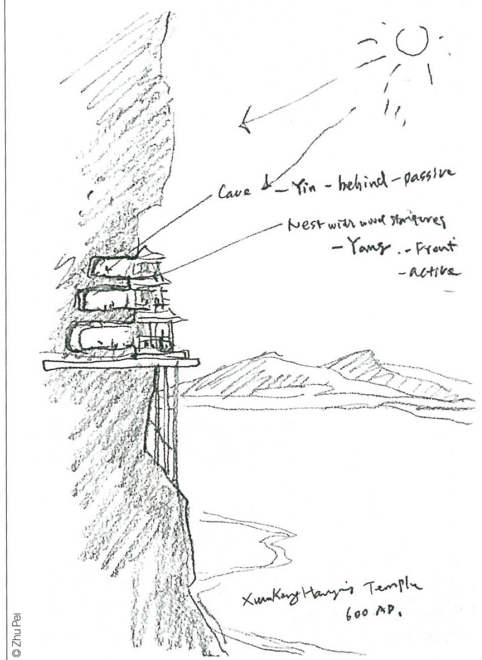 Cave - Yin - behind - passive
Nest with wood structures
- Yang - - Front
- active
XuanKong Hanging Temple
600 AD.
© Zhu Pei